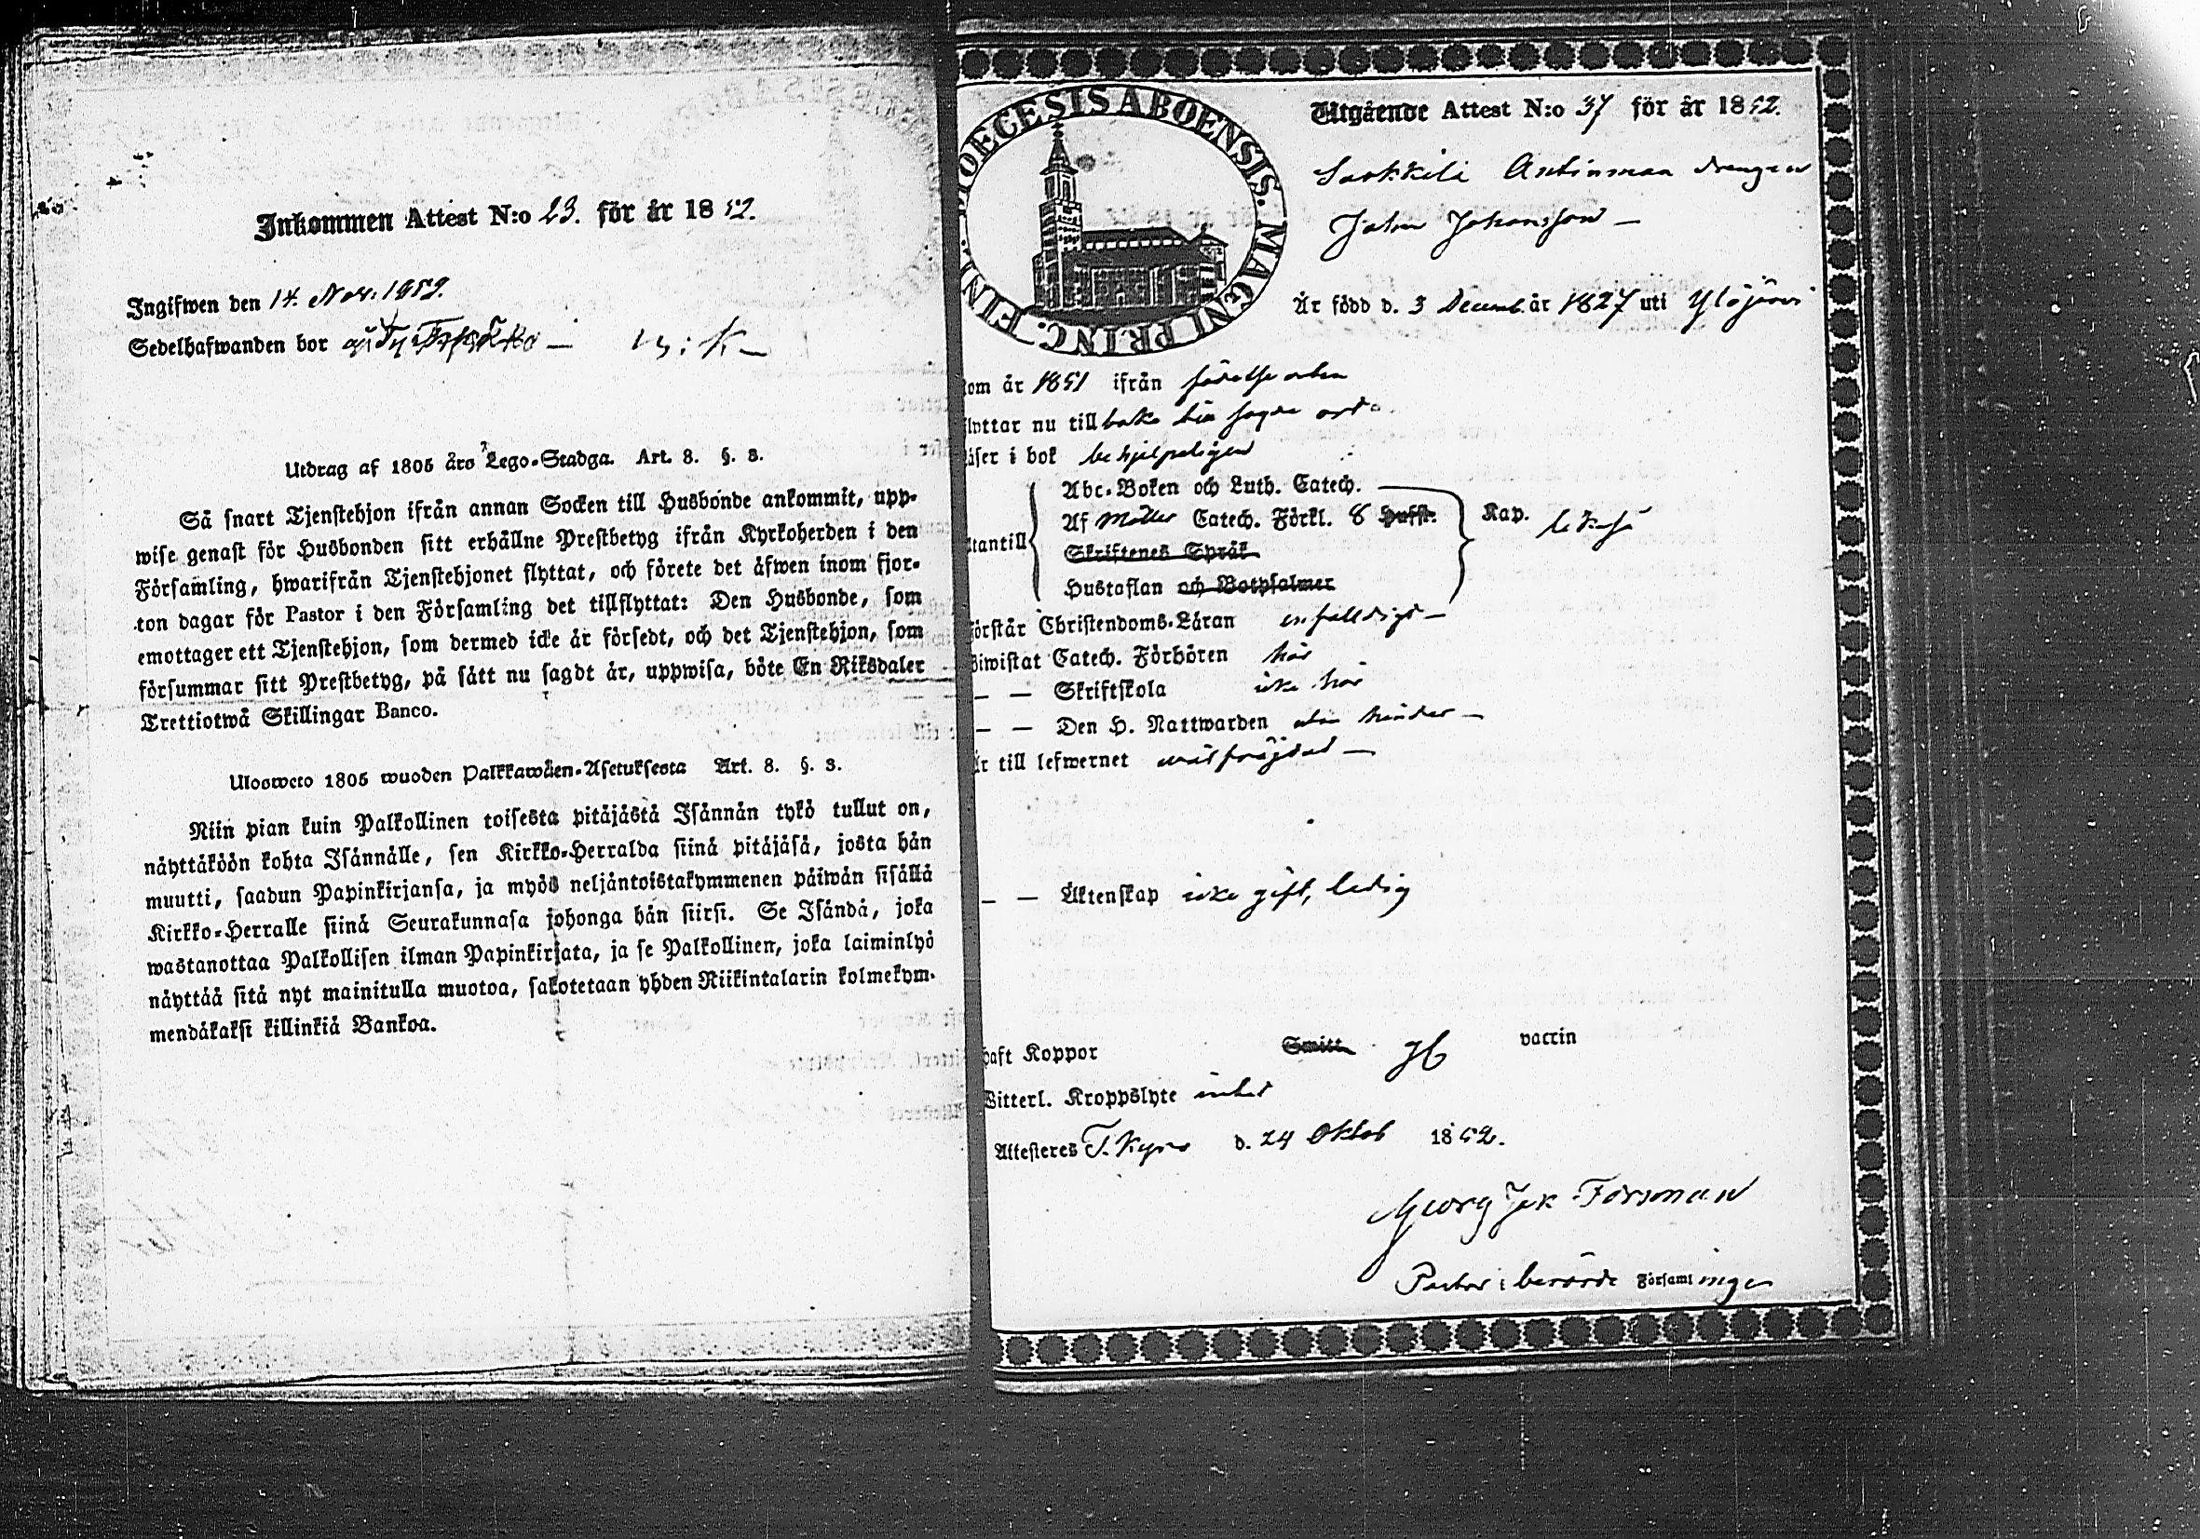 Inkommen Attest N:o 23. för år 1852.
Ingifwen den 14. Nov. 1852.
Sedelhafwanden bor
Utdrag af 1805 års Lego-Stadga. Art. 8. §. 3.
Så snart Tjenstehjon ifrån annan Socken till Husbonde ankommit, upp-
wise genast för Husbonden sitt erhållne Prestbetyg ifrån Kyrkoherden i den
Församling, hwarifrån Tjenstehjonet flyttat, och förete det äfwen inom fjor-
ton dagar för Pastor i den Församling det tillflyttat: Den Husbonde, som
emottager ett Tjenstehjon, som dermed icke är försedt, och det Tjenstehjon, som
försummar sitt Prestbetyg, på sätt nu sagdt är, uppwisa, böte En Riksdaler
Trettiotwå Skillingar Banco.
Ulosweto 1805 wuoden Palkkawäen-Asetuksesta Art. 8. §. 3.
Niin pian kuin Palkollinen toisesta pitäjästä Isännän tykö tullut on,
näyttäköön kohta Isännälle, sen Kirkko-Herralda siinä pitäjäsä, josta hän
muutti, saadun Papinkirjansa, ja myös neljäntoistakymmenen päiwän sisällä
Kirkko-Herralle siinä Seurakunnasa johonga hän siirsi. Se Isändä, joka
wastanottaa Palkollisen ilman Papinkirjata, ja se Palkollinen, joka laiminlyö
näyttää sitä nyt mainitulla muotoa, sakotetaan yhden Riikintalarin kolmekym-
mendäkaksi killinkiä Bankoa.
DIOECESIS ABOENSIS. MAGNI PRINC. FINL.
Utgående Attest N:o 37 för år 1852.
Antinmaa drengen
Johan Johansson
Är född d. 3 Decemb. år 1827 uti Ylöjärvi
kom år 1851 ifrån födelse orten
flyttar nu tillbaka till sagde ort
läser i bok behjelpeligen
Abc-Boken och Luth. Catech.
Af Möller Catech. Förkl. 8 Hufst. Kap. likaså
utantill
Skriftenes Språk
Hustaflan och Botpsalmer
Förstår Christendoms-Läran enfaldigt
Biwistat Catech. Förhören här
— — Skriftskola icke här
— — Den H. Nattwarden utan hinder
Är till lefwernet wälfrejdad
— — Äktenskap icke gift, ledig
haft Koppor Smitt vaccin
Witterl. Kroppslyte intet
Attesteres T. Kyro d. 24 Oktob 1852.
Georg Jak Forsman
Pastor i berörde Församlingen